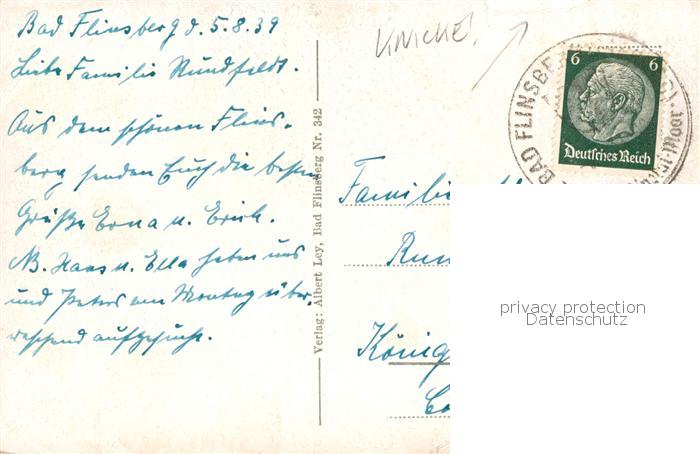 Bad Flinsberg d. 5.8.39
Liebe Familie Rundfeldt.
Aus dem schönen Flins-
berg senden Euch die besten
Grüße Erna u. Erich.
NB. Hans u. Ella haben uns
und Peters am Montag über-
raschend aufgesucht.
Verlag: Albert Ley, Bad Flinsberg Nr. 342
6 6
Deutsches Reich
BAD FLINSBE
Familie
Run
König
privacy protection
Datenschutz